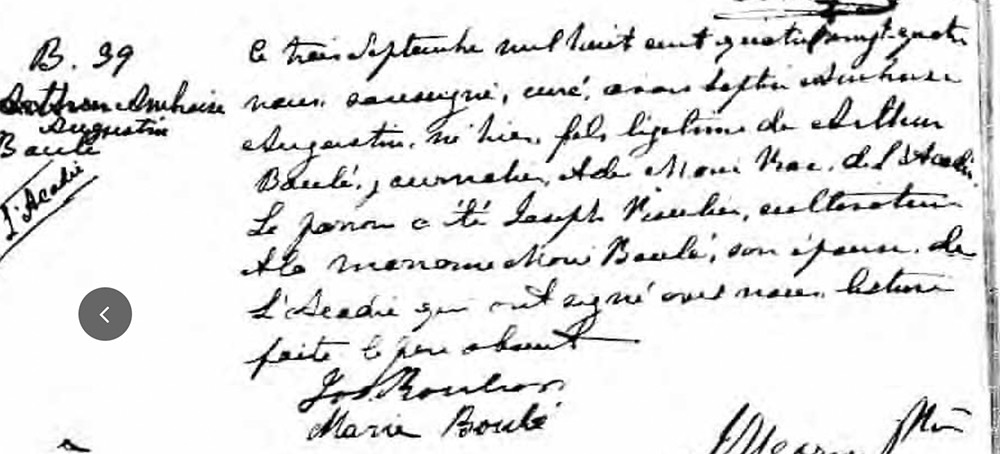 B. 39
Ambroise
Augustin
Baulé
L'Acadie
Ce trois Septembre mil huit cent quatre vingt-quatre
nous soussigné, curé, avons baptisé Ambroise
Augustin, né hier, fils légitime de Arthur
Baulé, journalier, & de Marie, de l'Acadie.
Le parrain a été Joseph, cultivateur
& la marraine Marie Baulé, son épouse, de
L'Acadie qui ont signé avec nous. lecture
faite le père absent
Jos.
Marie Boulé